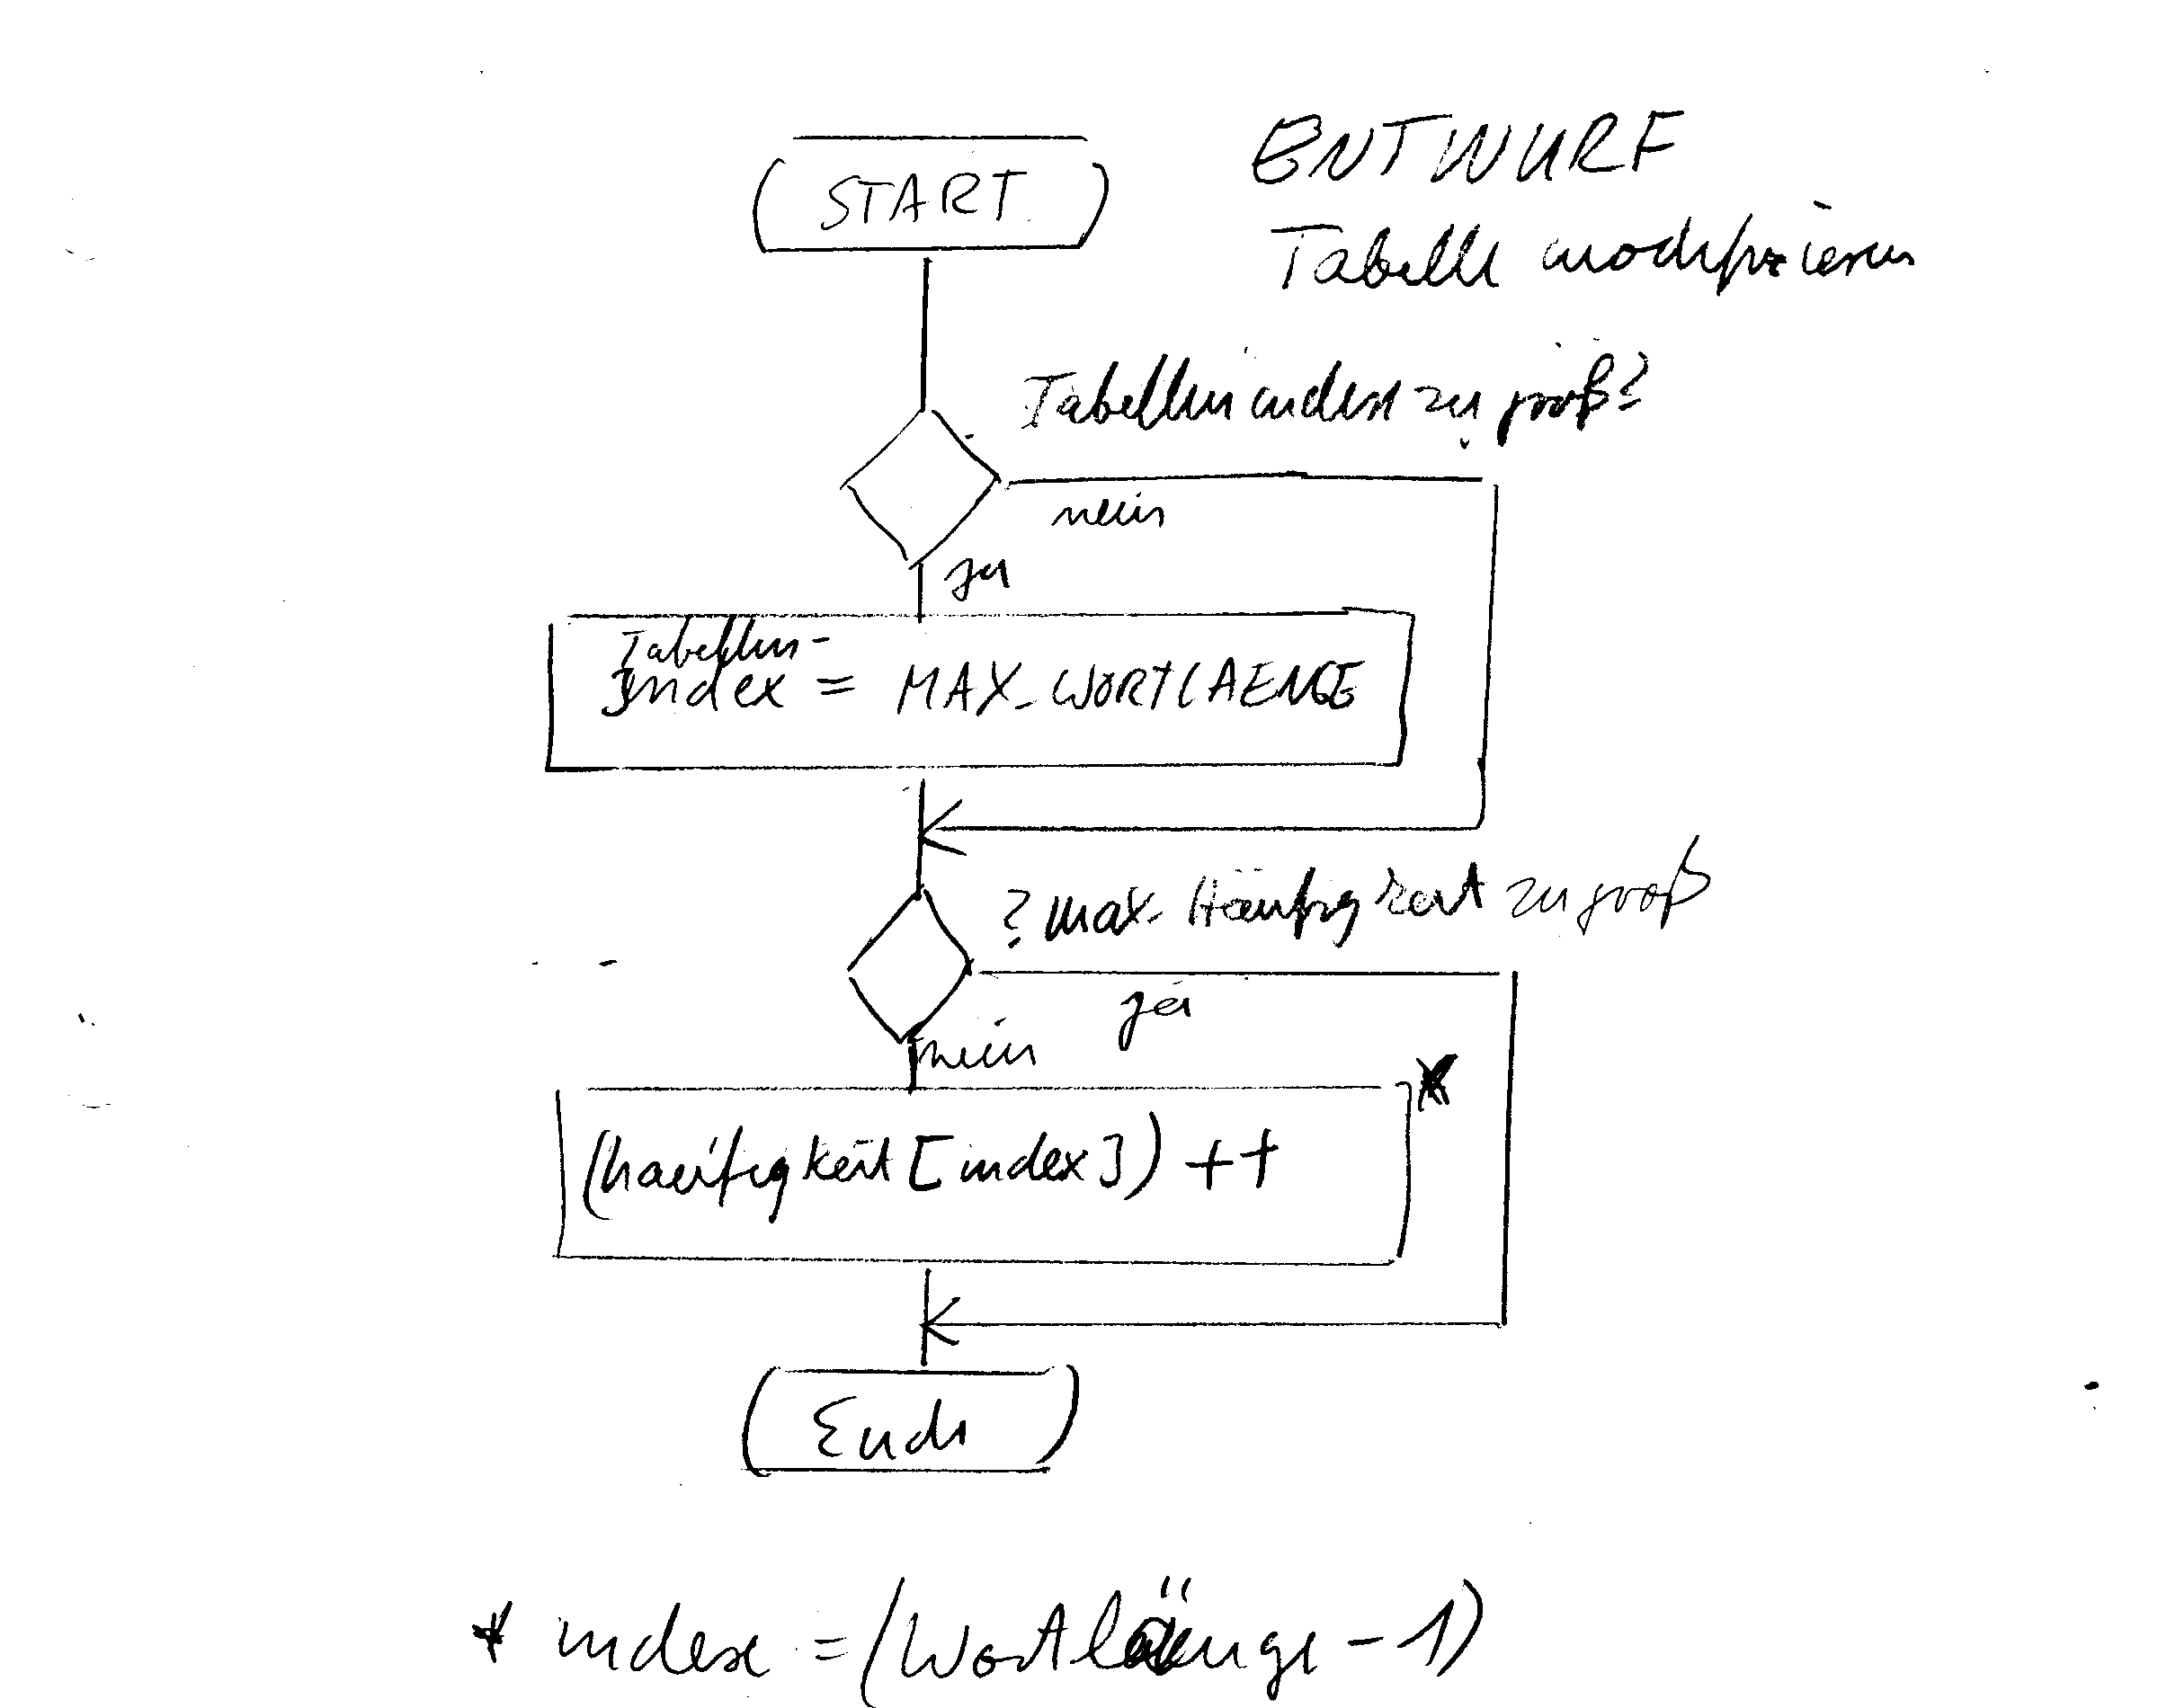 START
ENTWURF
Tabelle modifizieren
Tabellenindex zu groß?
nein
ja
Tabellen-
Index = MAX_WORTLAENGE
? max. Häufigkeit zu groß
ja
nein
*
(haeufigkeit [index]) ++
Ende
* index = (Wortlänge - 1)